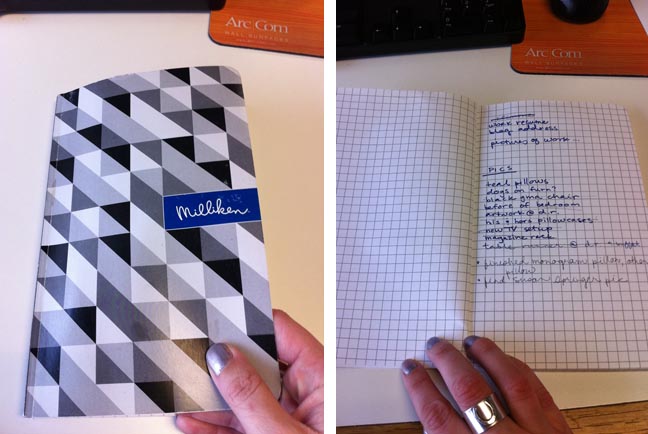 Arc|Com
WALL SURFACES
Milliken.
Arc|Com
WALL SURFACES
work resume
blog address
pictures of work...
PICS
teal pillows
dogs on furn?
black gma chair
before of bedroom
artwork @ d.r.
his & hers pillowcases
new TV setup
magazine rack
table runner @ d.r.
• finished monogram pillow, other
pillow
• find Susan Springer pic